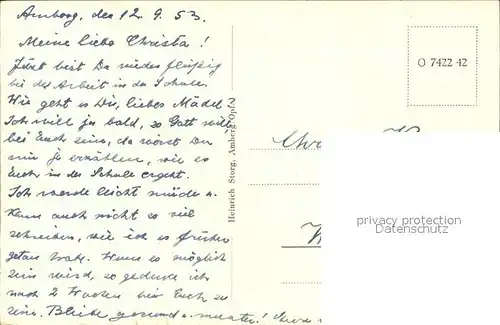 Amberg, den 12. 9. 53.
Meine liebe Christa!
Jetzt bist Du wieder fleißig
bei der Arbeit in der Schule.
Wie geht es Dir, liebes Mädel?
Ich will ja bald, so Gott will,
bei Euch sein, da wirst Du
mir ja erzählen, wie es
Euch in der Schule ergeht.
Ich werde leicht müde u.
kann auch nicht so viel
schreiben, wie ich es früher
getan habe. Wenn es möglich
sein wird, so gedenke ich
nach 2 Wochen bei Euch zu
sein. Bleibe gesund u. munter!
Heinrich Storg, Amberg/Opf.
O 7422 42
privacy protection
Datenschutz